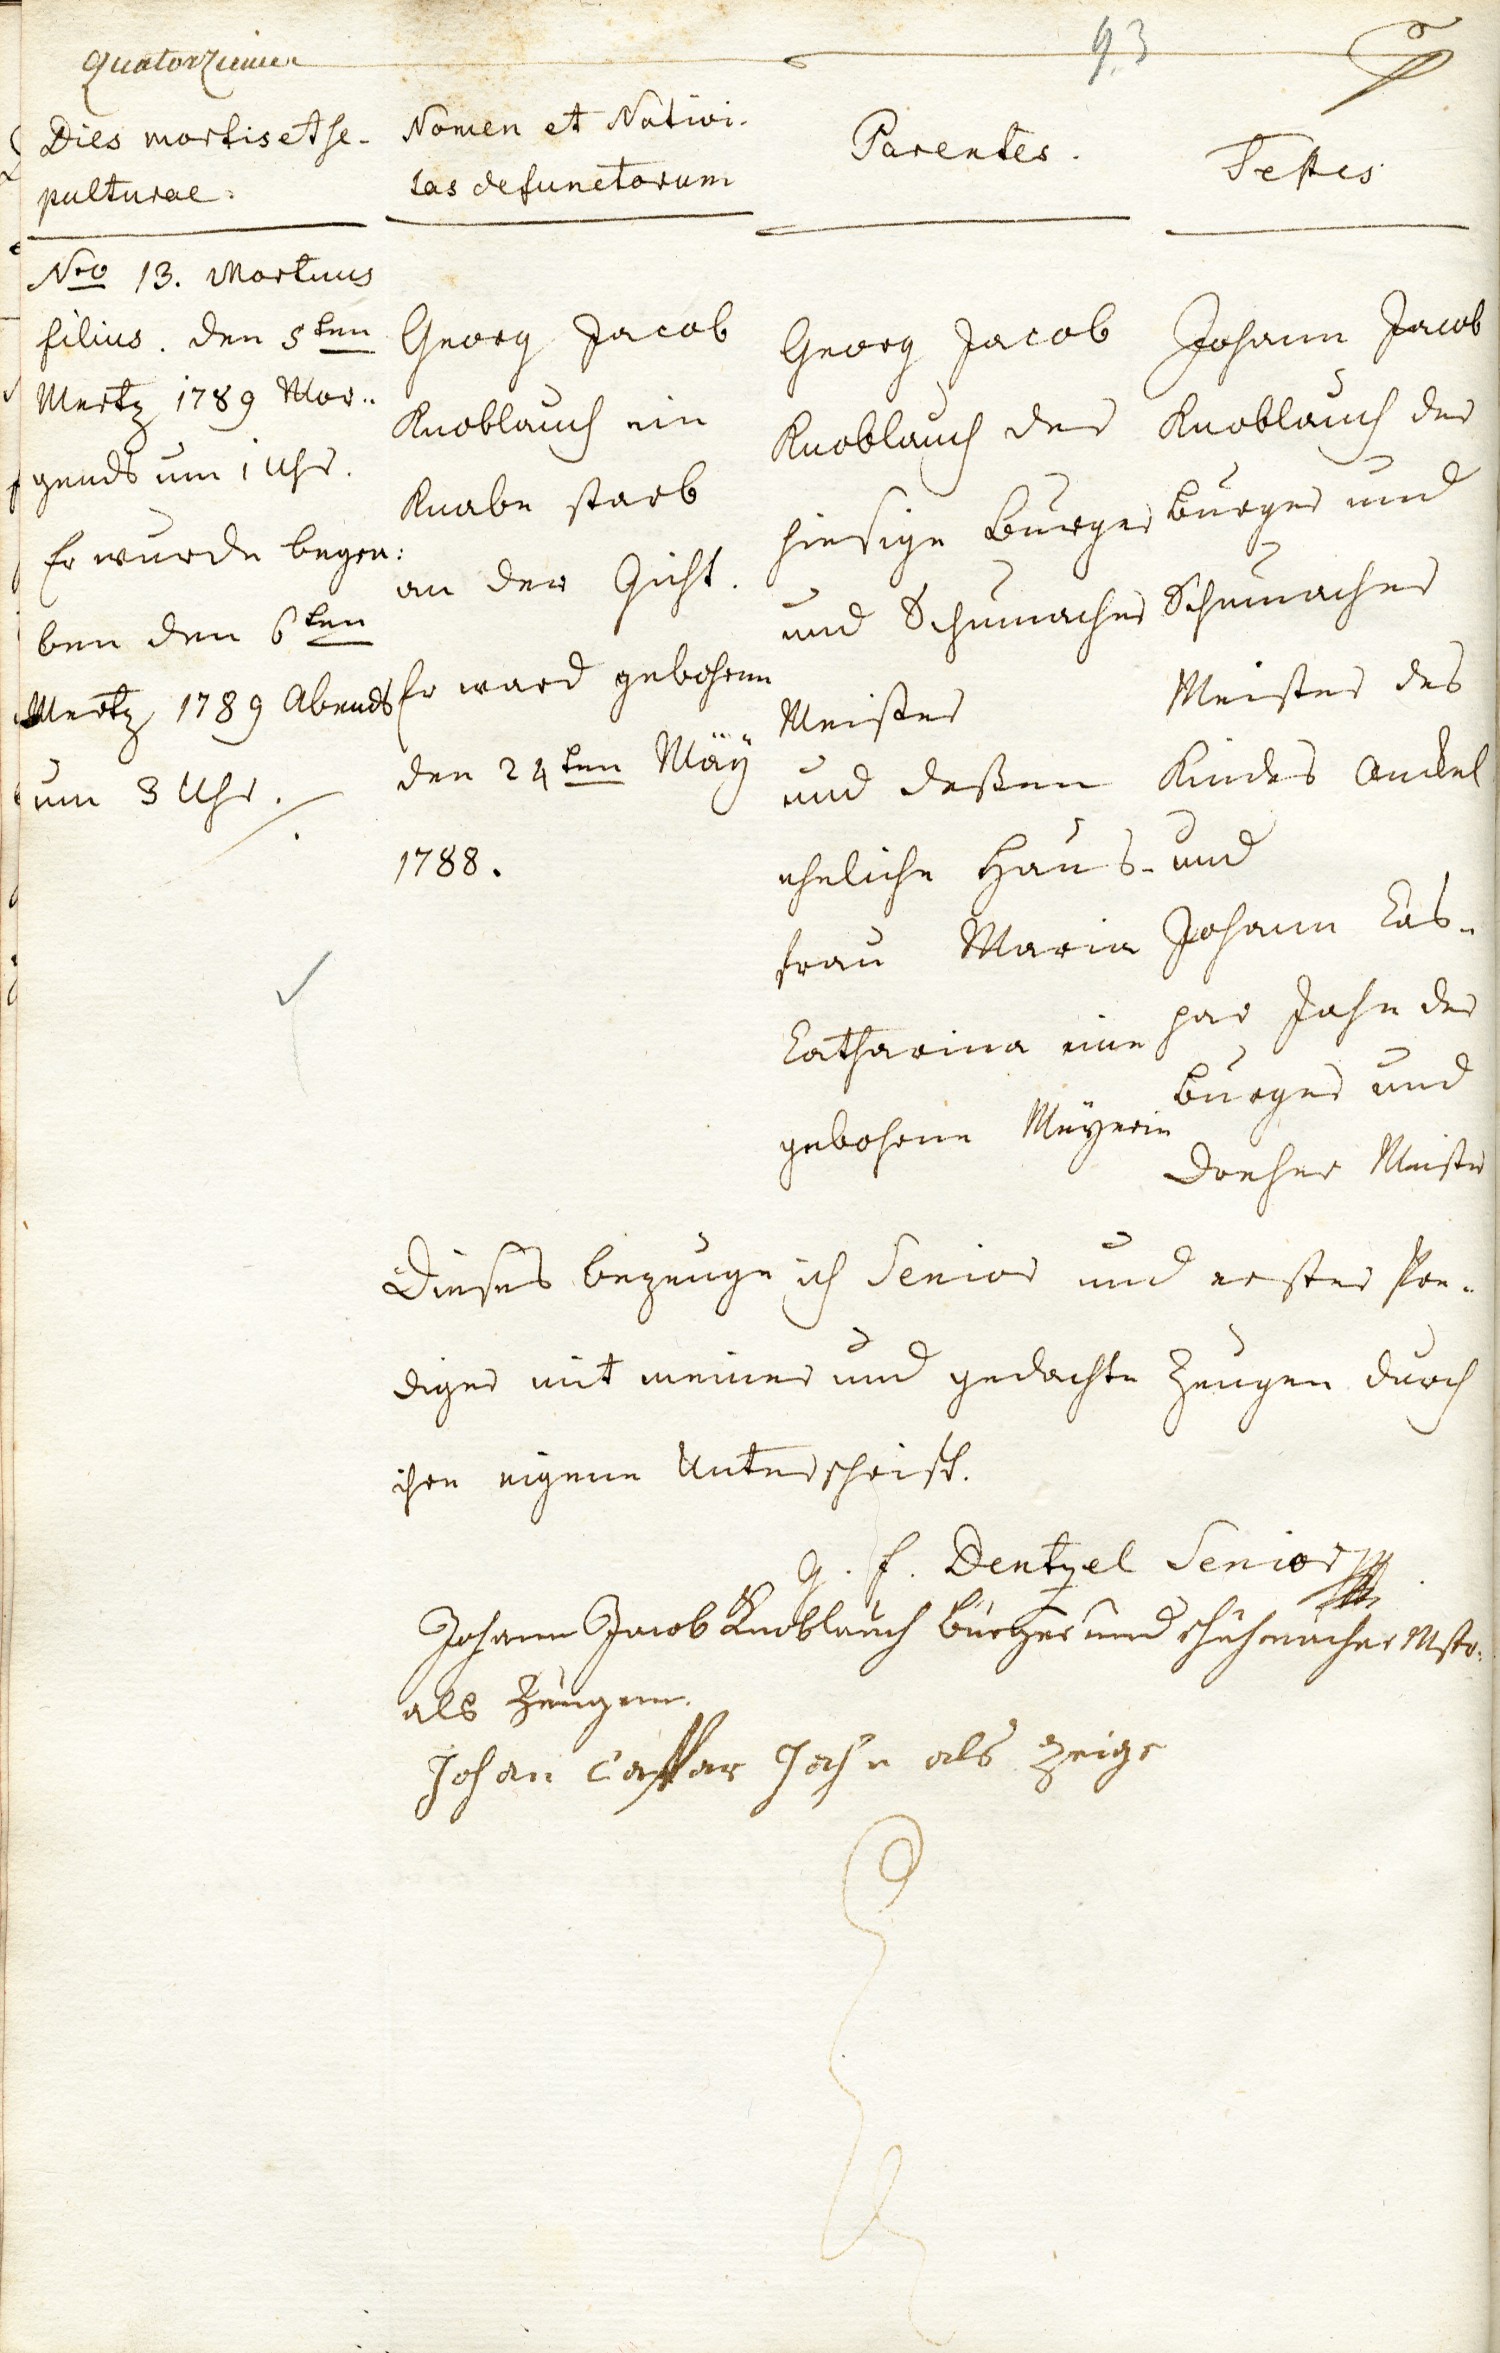 Quatorzieme
93
Dies mortis et se-
pulturae.
Nro 13. Mortuus
filius. den 5ten
Mertz 1789 Mor-
gends um 1 Uhr.
Er wurde begra:
ben den 6ten
Mertz 1789 Abends
um 3 Uhr.
Nomen et Nativi-
tas defunctorum
Georg Jacob
Knoblauch ein
Knabe starb
an der Gicht.
Er ward gebohren
den 24ten Mäÿ
1788.
Parentes.
Georg Jacob
Knoblauch der
hiesige Burger
und Schumacher
Meister
und deßen
eheliche Haus-
frau Maria
Catharina eine
gebohrne Meÿerin
Testes
Johann Jacob
Knoblauch der
Burger und
Schumacher
Meister des
Kindes Onckel
und
Johann Cas-
par Jahn der
Burger und
Dreher Meister
Dieses bezeuge ich Senior und erster Pre-
diger mit meiner und gedachte Zeugen durch
ihre eigene Unterschrift.
G. F. Dentzel Senior
Johann Jacob Knoblauch Burger und schuhmacher Mstr:
als Zeugen.
Johan Caspar Jahn als Zeige